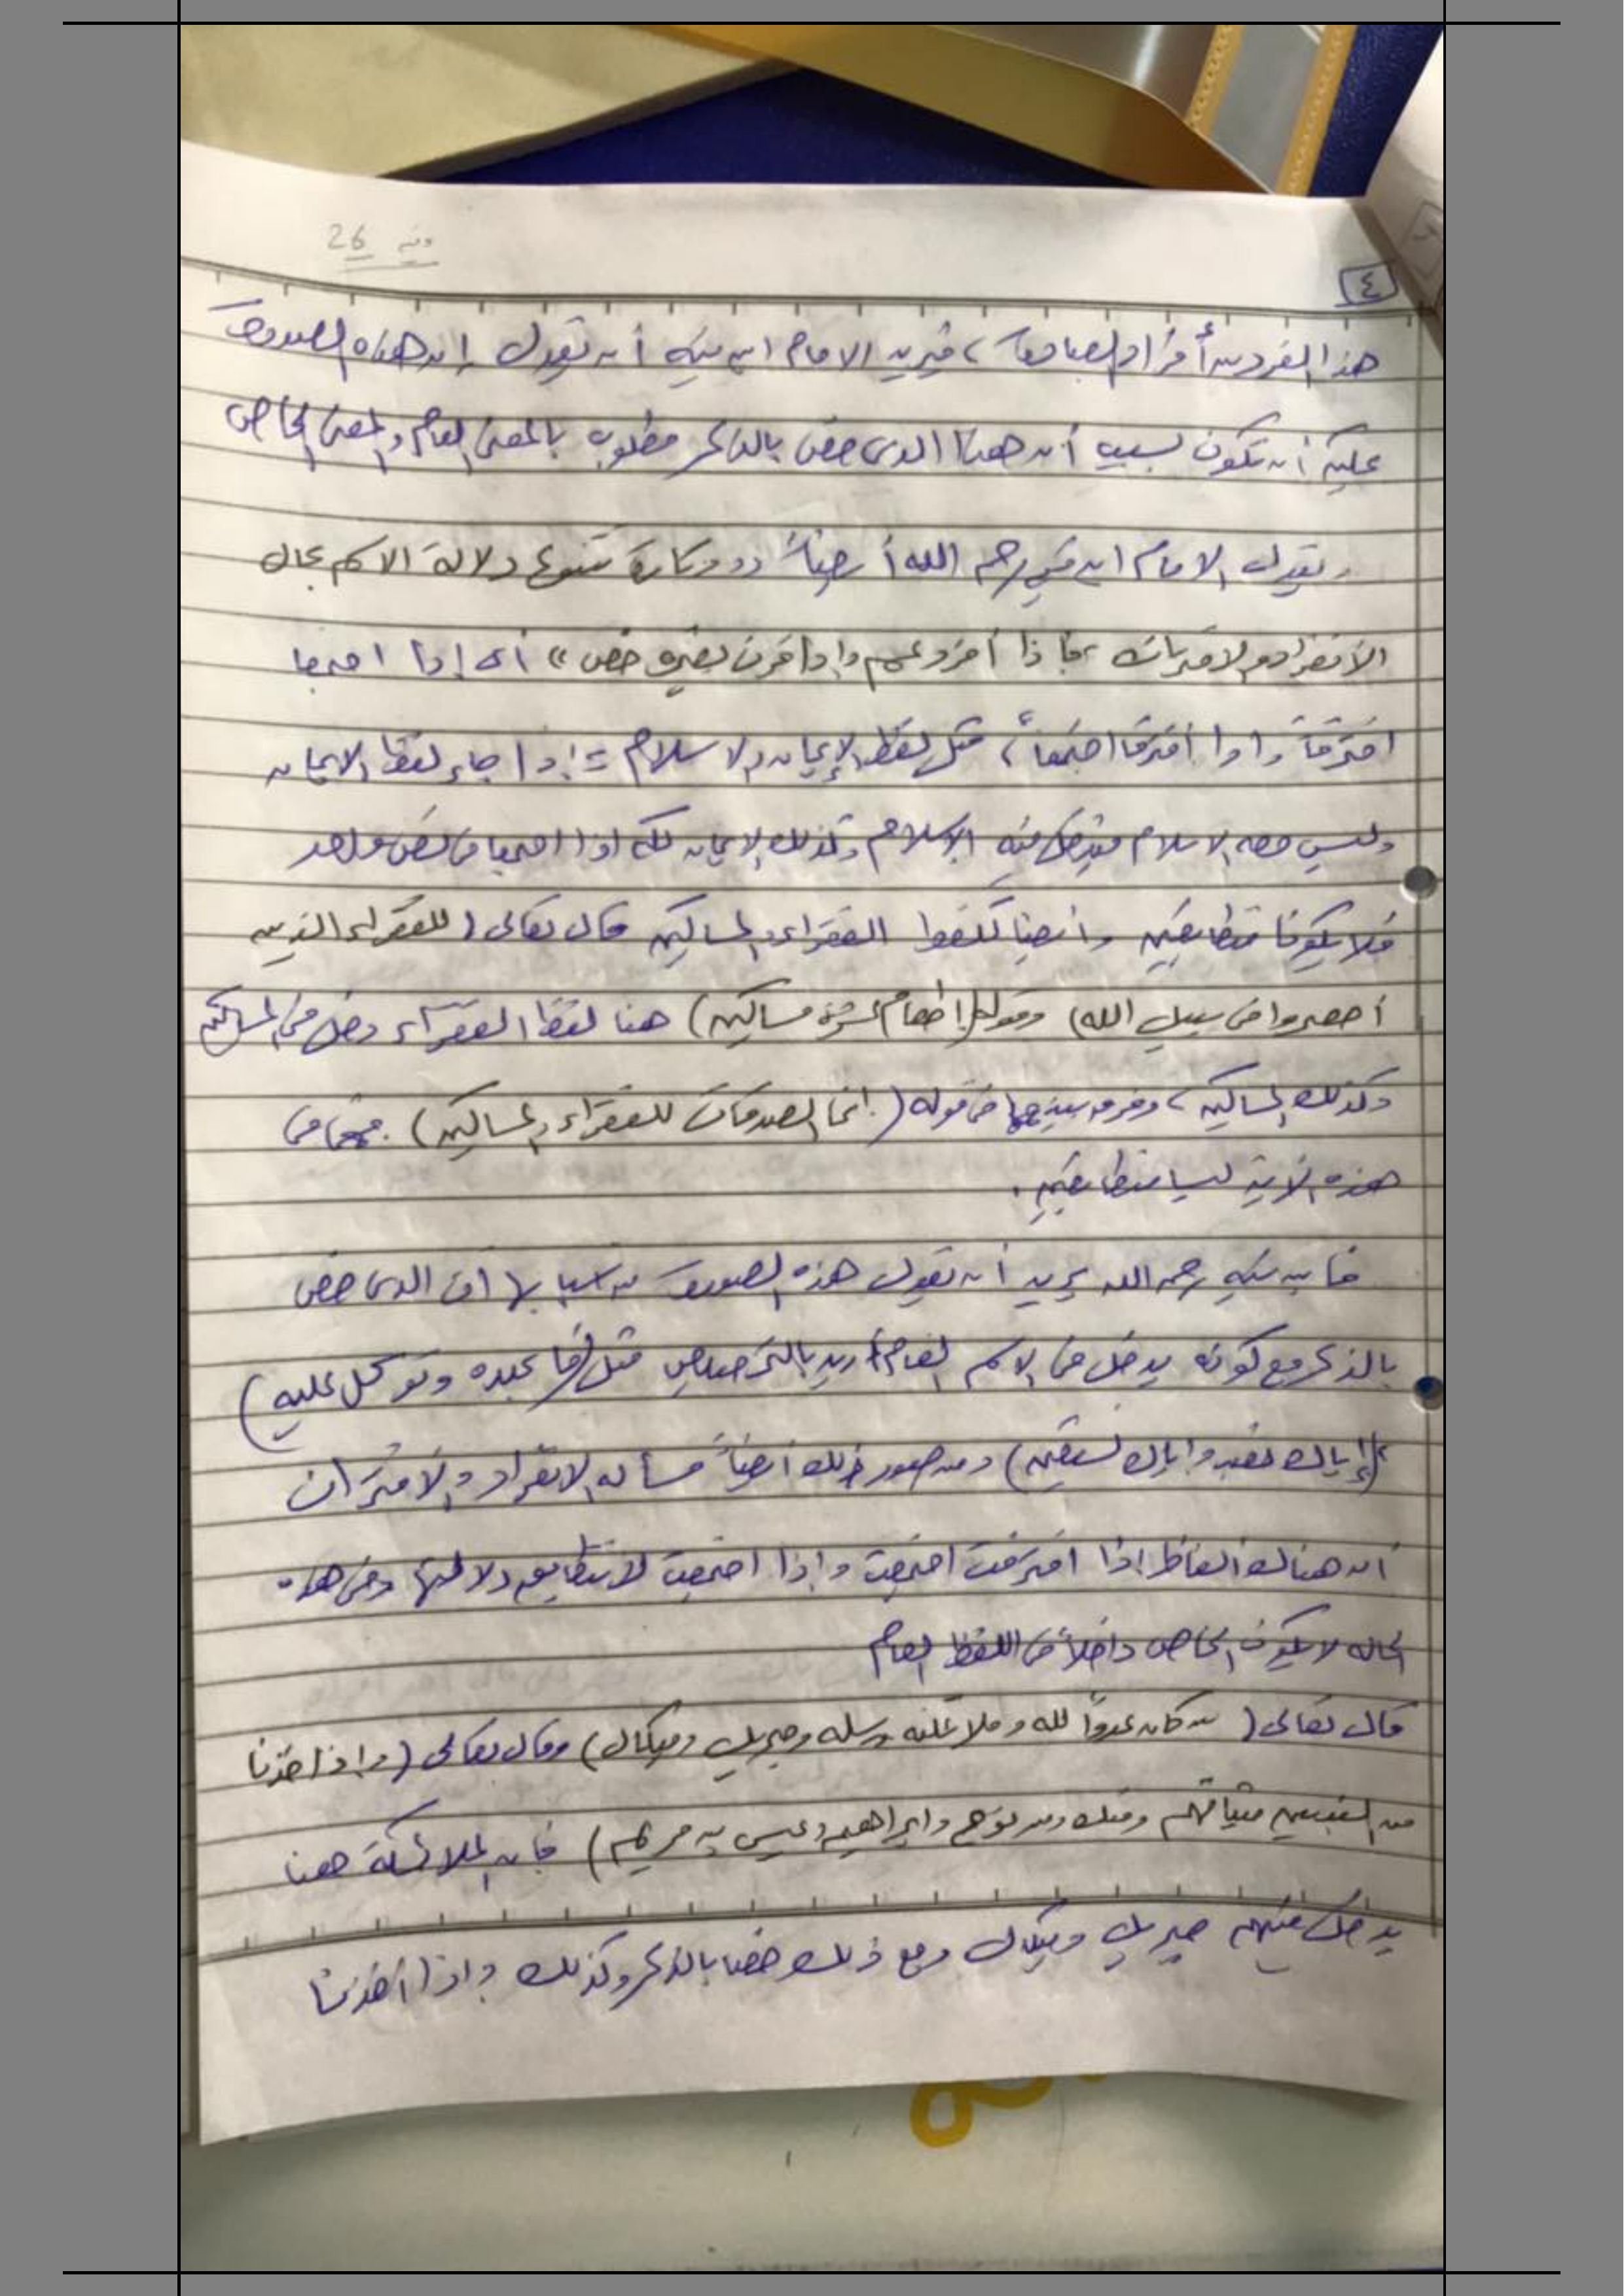 26
٤
هذا الفرد من أفراد العبادة، فيريد الامام ابن تيميه أن يقول إن هذه الصدوف
عليه أن تكون لسبب أن هذا الذى خص بالذكر مطلوب بالمعنى العام والمعنى الخاص
ويقول الامام ابن تيميه رحمه الله أيضاً (( وتارة تتنوع دلالة الاسم بحال
الانفراد والاقتران ، فاذا أفرد عم وإذا قرن بغيره خص )) أى إذا اجتمعا
افترقا وإذا افترقا اجتمعا ، مثل لفظ الإيمان والاسلام = إذا جاء لفظ الايمان
وليس معه الاسلام فيدخل فيه الاسلام وكذلك الايمان لكن اذا اجتمعا فى نص واحد
فلا يكونا متطابقين وأيضا كلفظ الفقراء والمساكين قال تعالى ( للفقراء الذين
أحصروا فى سبيل الله ) وقوله ( إطعام عشرة مساكين ) هنا لفظ الفقراء دخل فى المساكين
وكذلك المساكين ، وفرق بينهما فى قوله ( إنما الصدقات للفقراء والمساكين ) فهما فى
هذه الآية ليسا متطابقين .
فابن تيميه رحمه الله يريد أن يقول هذه الصدوف من أسبابها أن الذى خص
بالذكر مع كونه يدخل فى الاسم العام أريد بالتخصيص مثل ( فاعبده وتوكل عليه )
( إياك نعبد وإياك نستعين ) ومن صور ذلك أيضاً مسأله الانفراد والاقتران
أن هناك ألفاظ إذا افترقت اجتمعت وإذا اجتمعت لا تتطابق دلالتها وفى هذه
الحاله لا يكون الخاص داخلاً فى اللفظ العام
قال تعالى ( من كان عدواً لله وملائكته ورسله وجبريل وميكال ) وقال تعالى ( وإذ أخذنا
من النبيين ميثاقهم ومنك ومن نوح وابراهيم وعيسى بن مريم ) فإن الملائكة هنا
يدخل فيهم جبريل وميكال ومع ذلك خصا بالذكر وكذلك وإذ أخذنا